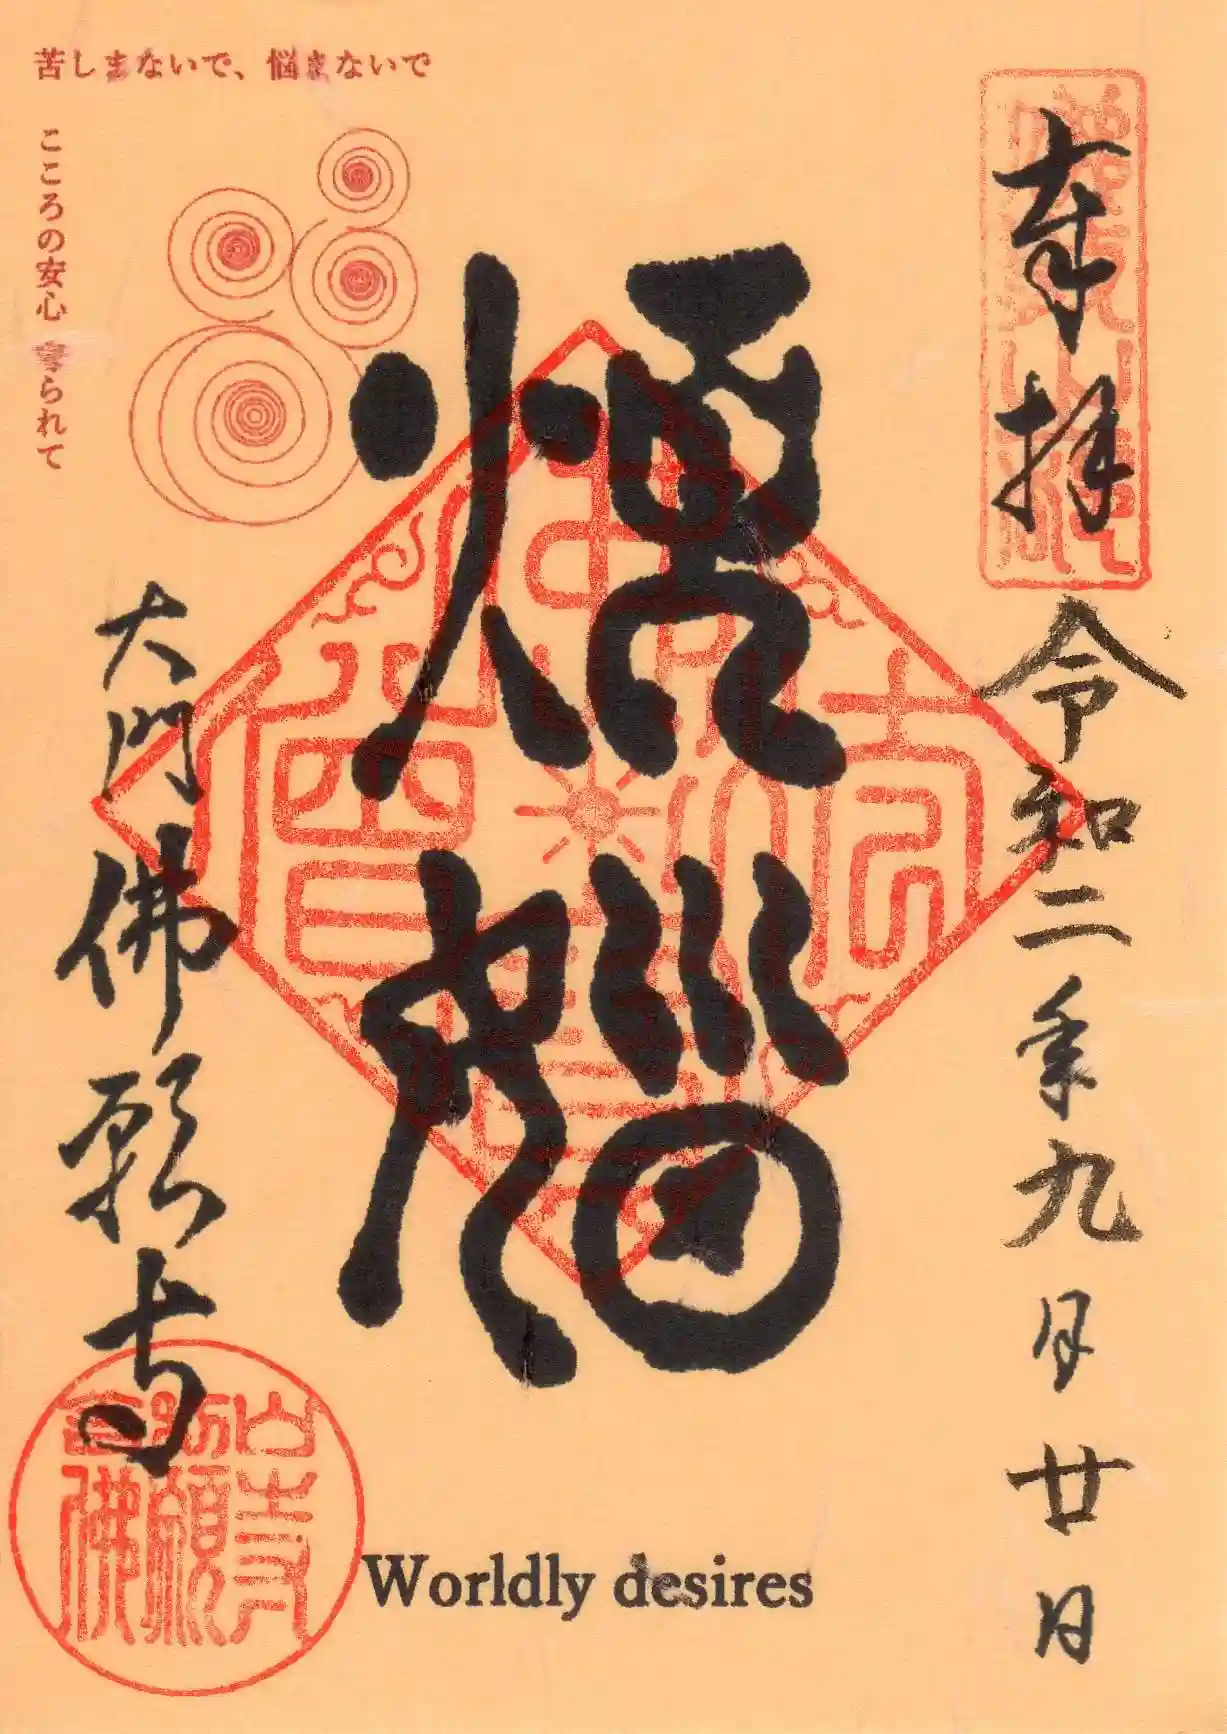 苦しまないで、悩まないで
こころの安心 守られて
奉拝
令和二年九月廿日
煩悩
大門佛願寺
Worldly desires